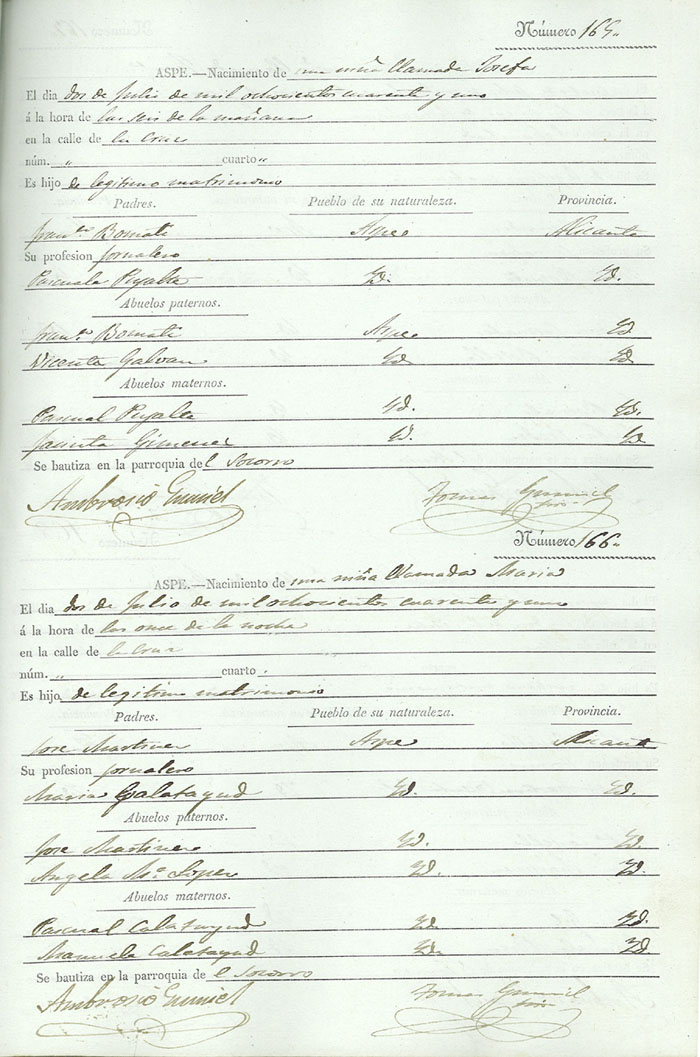 Número 165.
ASPE.—Nacimiento de una niña llamada Josefa
El dia dos de Julio de mil ochocientos cuarenta y uno
á la hora de las seis de la mañana
en la calle de la Cruz
núm. „ cuarto „
Es hijo de legitimo matrimonio
Padres. Pueblo de su naturaleza. Provincia.
Fran.co Bomati Aspe Alicante
Su profesion jornalero
Pascuala Pujalte Yd. Yd.
Abuelos paternos.
Fran.co Bomati Aspe Yd
Vicenta Galvan Yd Yd
Abuelos maternos.
Pascual Pujalte Yd. Yd.
Jacinta Gimenez Yd. Yd
Se bautiza en la parroquia del Socorro
Ambrosio Gumiel Tomas Gumiel
Número 166.
ASPE.—Nacimiento de una niña llamada Maria
El dia dos de Julio de mil ochocientos cuarenta y uno
á la hora de las once de la noche
en la calle de la Cruz
núm. „ cuarto .
Es hijo de legitimo matrimonio
Padres. Pueblo de su naturaleza. Provincia.
Jose Martinez Aspe Alicante
Su profesion jornalero
Maria Calatayud Yd. Yd.
Abuelos paternos.
Jose Martinez Yd. Yd.
Angela Mª Lopez Yd. Yd.
Abuelos maternos.
Pascual Calatayud Yd. Yd.
Manuela Calatayud Yd. Yd.
Se bautiza en la parroquia del Socorro
Ambrosio Gumiel Tomas Gumiel